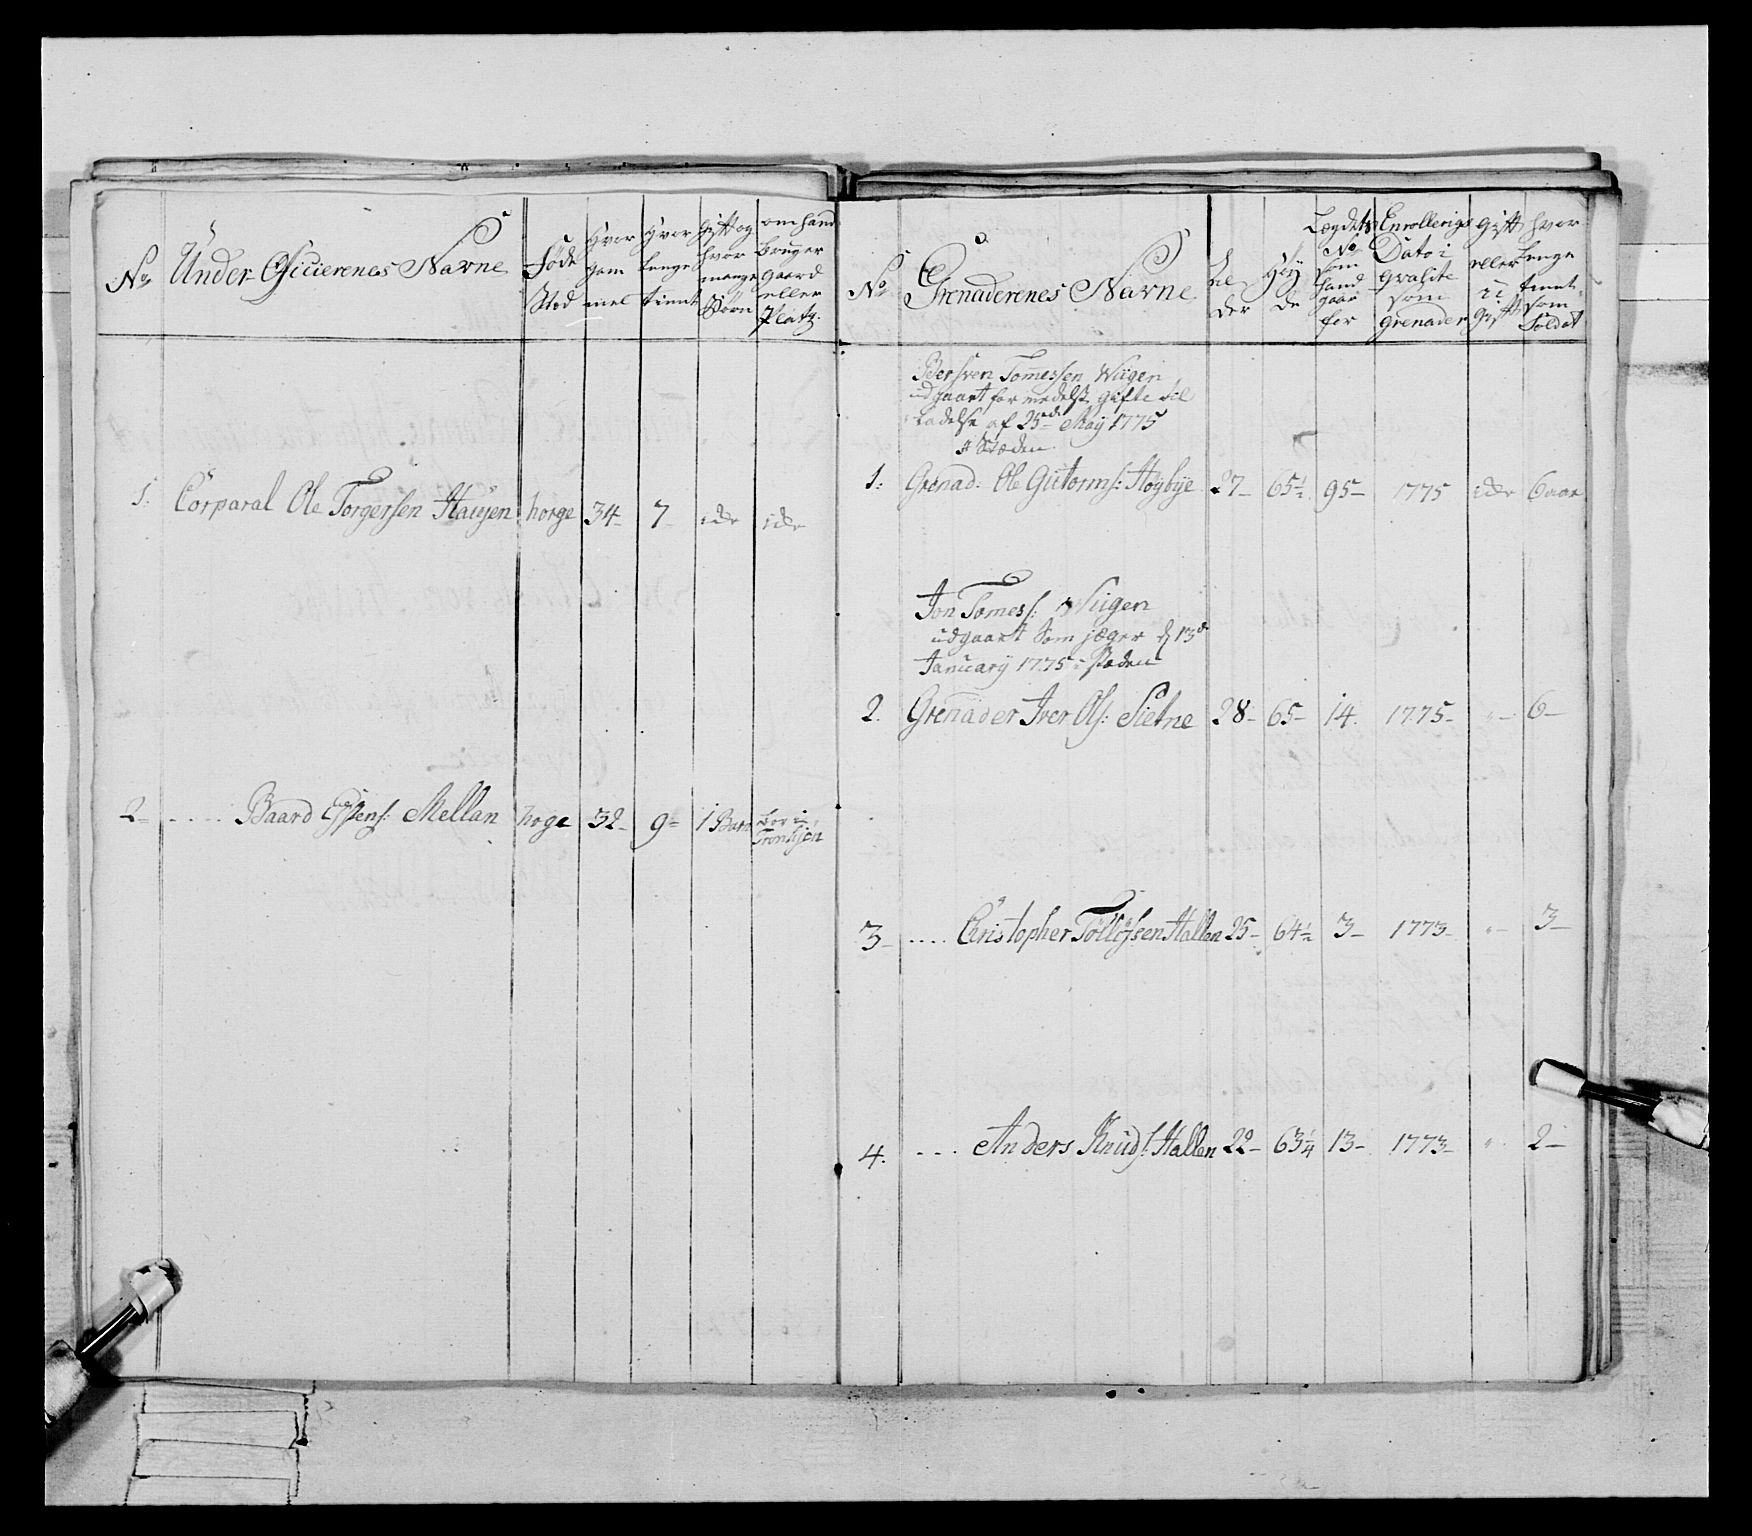 No
Under Officierenes Navne
Føde
Sted
Hvor
gam
mel
Hvor
lenge
tient
Gift og
hvor
mange
Børn
om hand
bruger
gaard
eller
Platz.
1. Corporal Ole Torgersen Hausen horge 34 7 icke icke
2 Baard Espens: Mellan hoge 32 9 1 Barn
boer i
Tronhjen
No
Grenaderenes Navne
Al
der
Høy
de
Lægdets
No
som
hand
gaar
for
Enrollerigs
Dato i
qvalite
som
grenader
gift
eller
u
Gift
hvor
lenge
tient
som
Soldat
Peer Sven Tomessen Wiigen
udgaaet formedelst gifte til
ladelse af 25de May 1775
i Stæden
1. Grenad: Ole Gutorms: Høybye 27 65½ 95 1775 icke 6 aar
Jon Tomess: Wiigen
udgaaet som jæger d 13de
January 1775 i stæden
2. Grenader Iver Ols: Sletne 28 65 14. 1775 " 6
3 .... Christopher Tollefsen Hallan 25 64½ 3 1773 " 3
4. ... Anders Knuds: Hallan 22 63¼ 13 1773 " 2